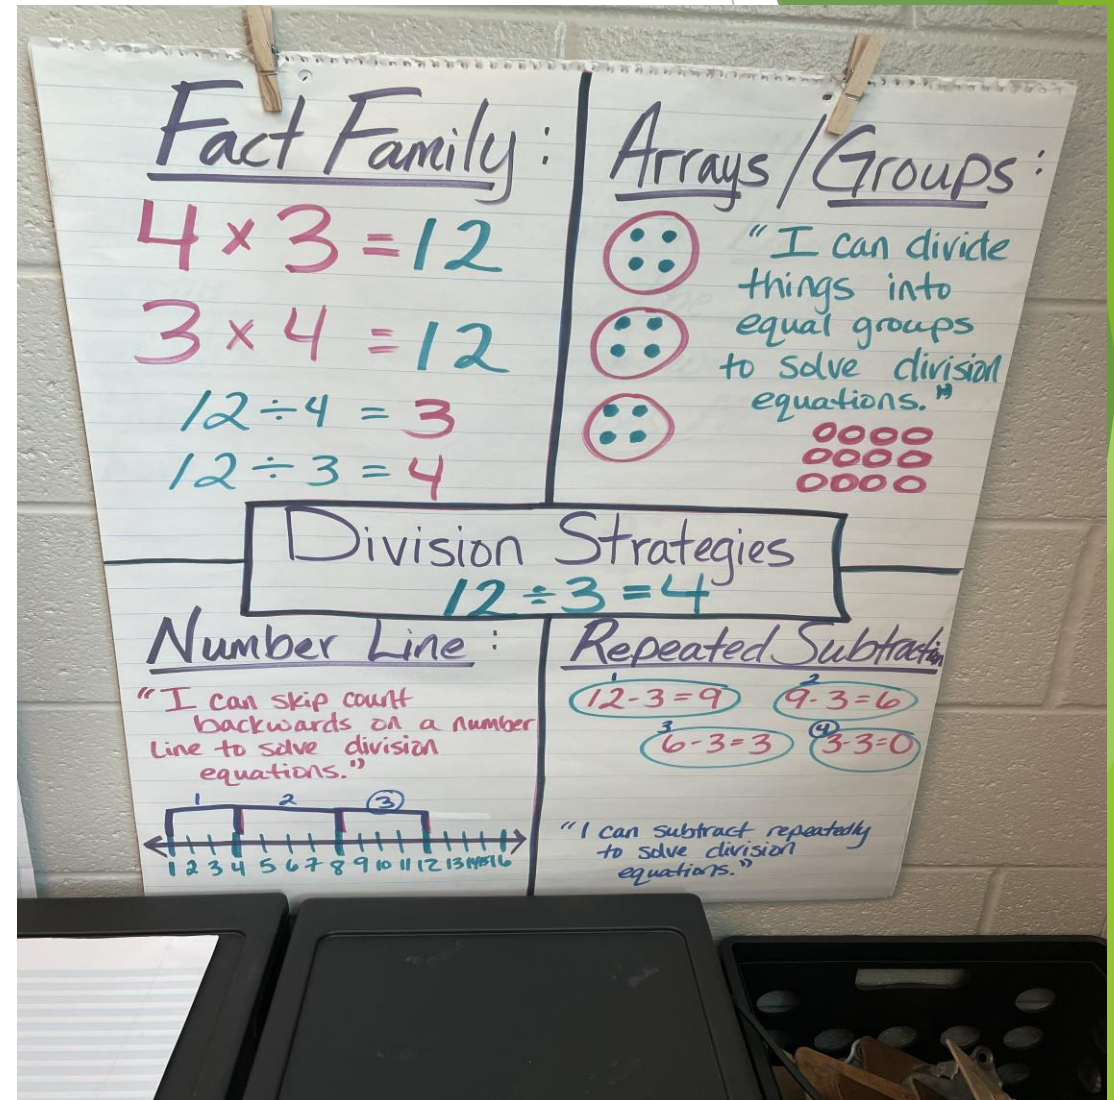 Fact Family:
4 x 3 = 12
3 x 4 = 12
12 ÷ 4 = 3
12 ÷ 3 = 4
Arrays / Groups:
"I can divide
things into
equal groups
to solve division
equations."
Division Strategies
12 ÷ 3 = 4
Number Line:
"I can skip count
backwards on a number
Line to solve division
equations."
1 2 3
1 2 3 4 5 6 7 8 9 10 11 12 13 14 15 16
Repeated Subtraction
1 2
12-3=9 9-3=6
3 4
6-3=3 3-3=0
"I can subtract repeatedly
to solve division
equations."